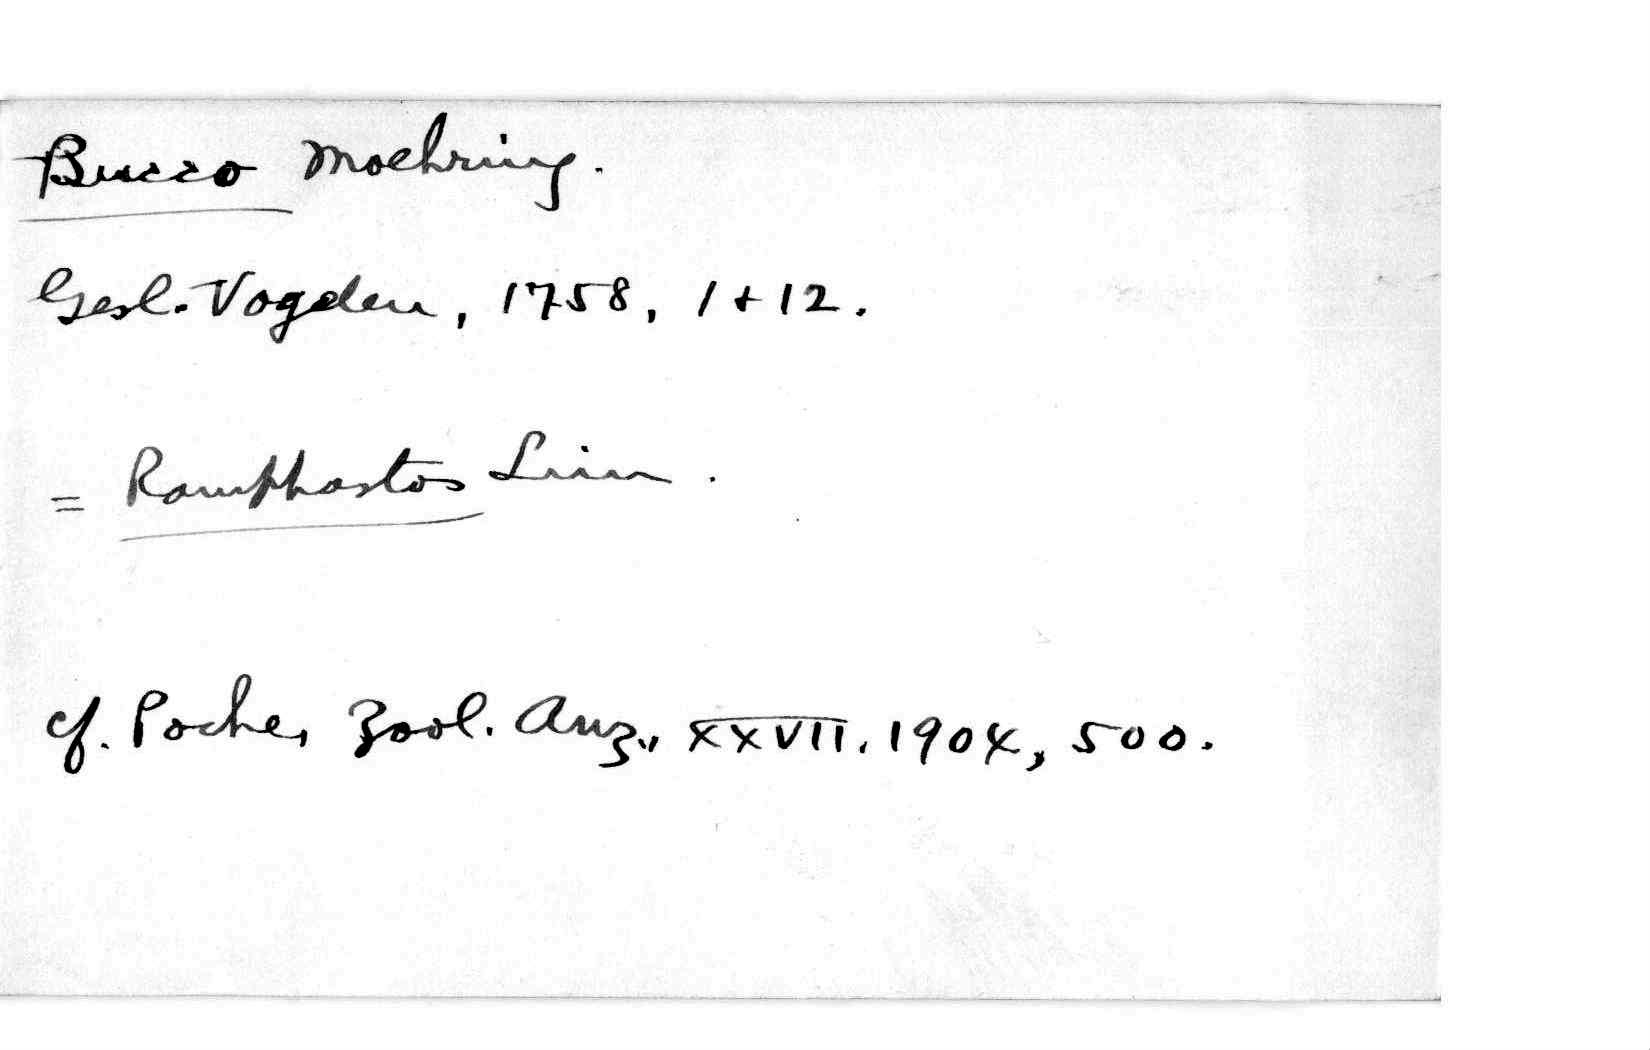 Bucco Moehring.
Gesl. Vogelen, 1758, 1+12.
= Ramphastos Linn.
cf. Poche, Zool. Anz., XXVII, 1904, 500.